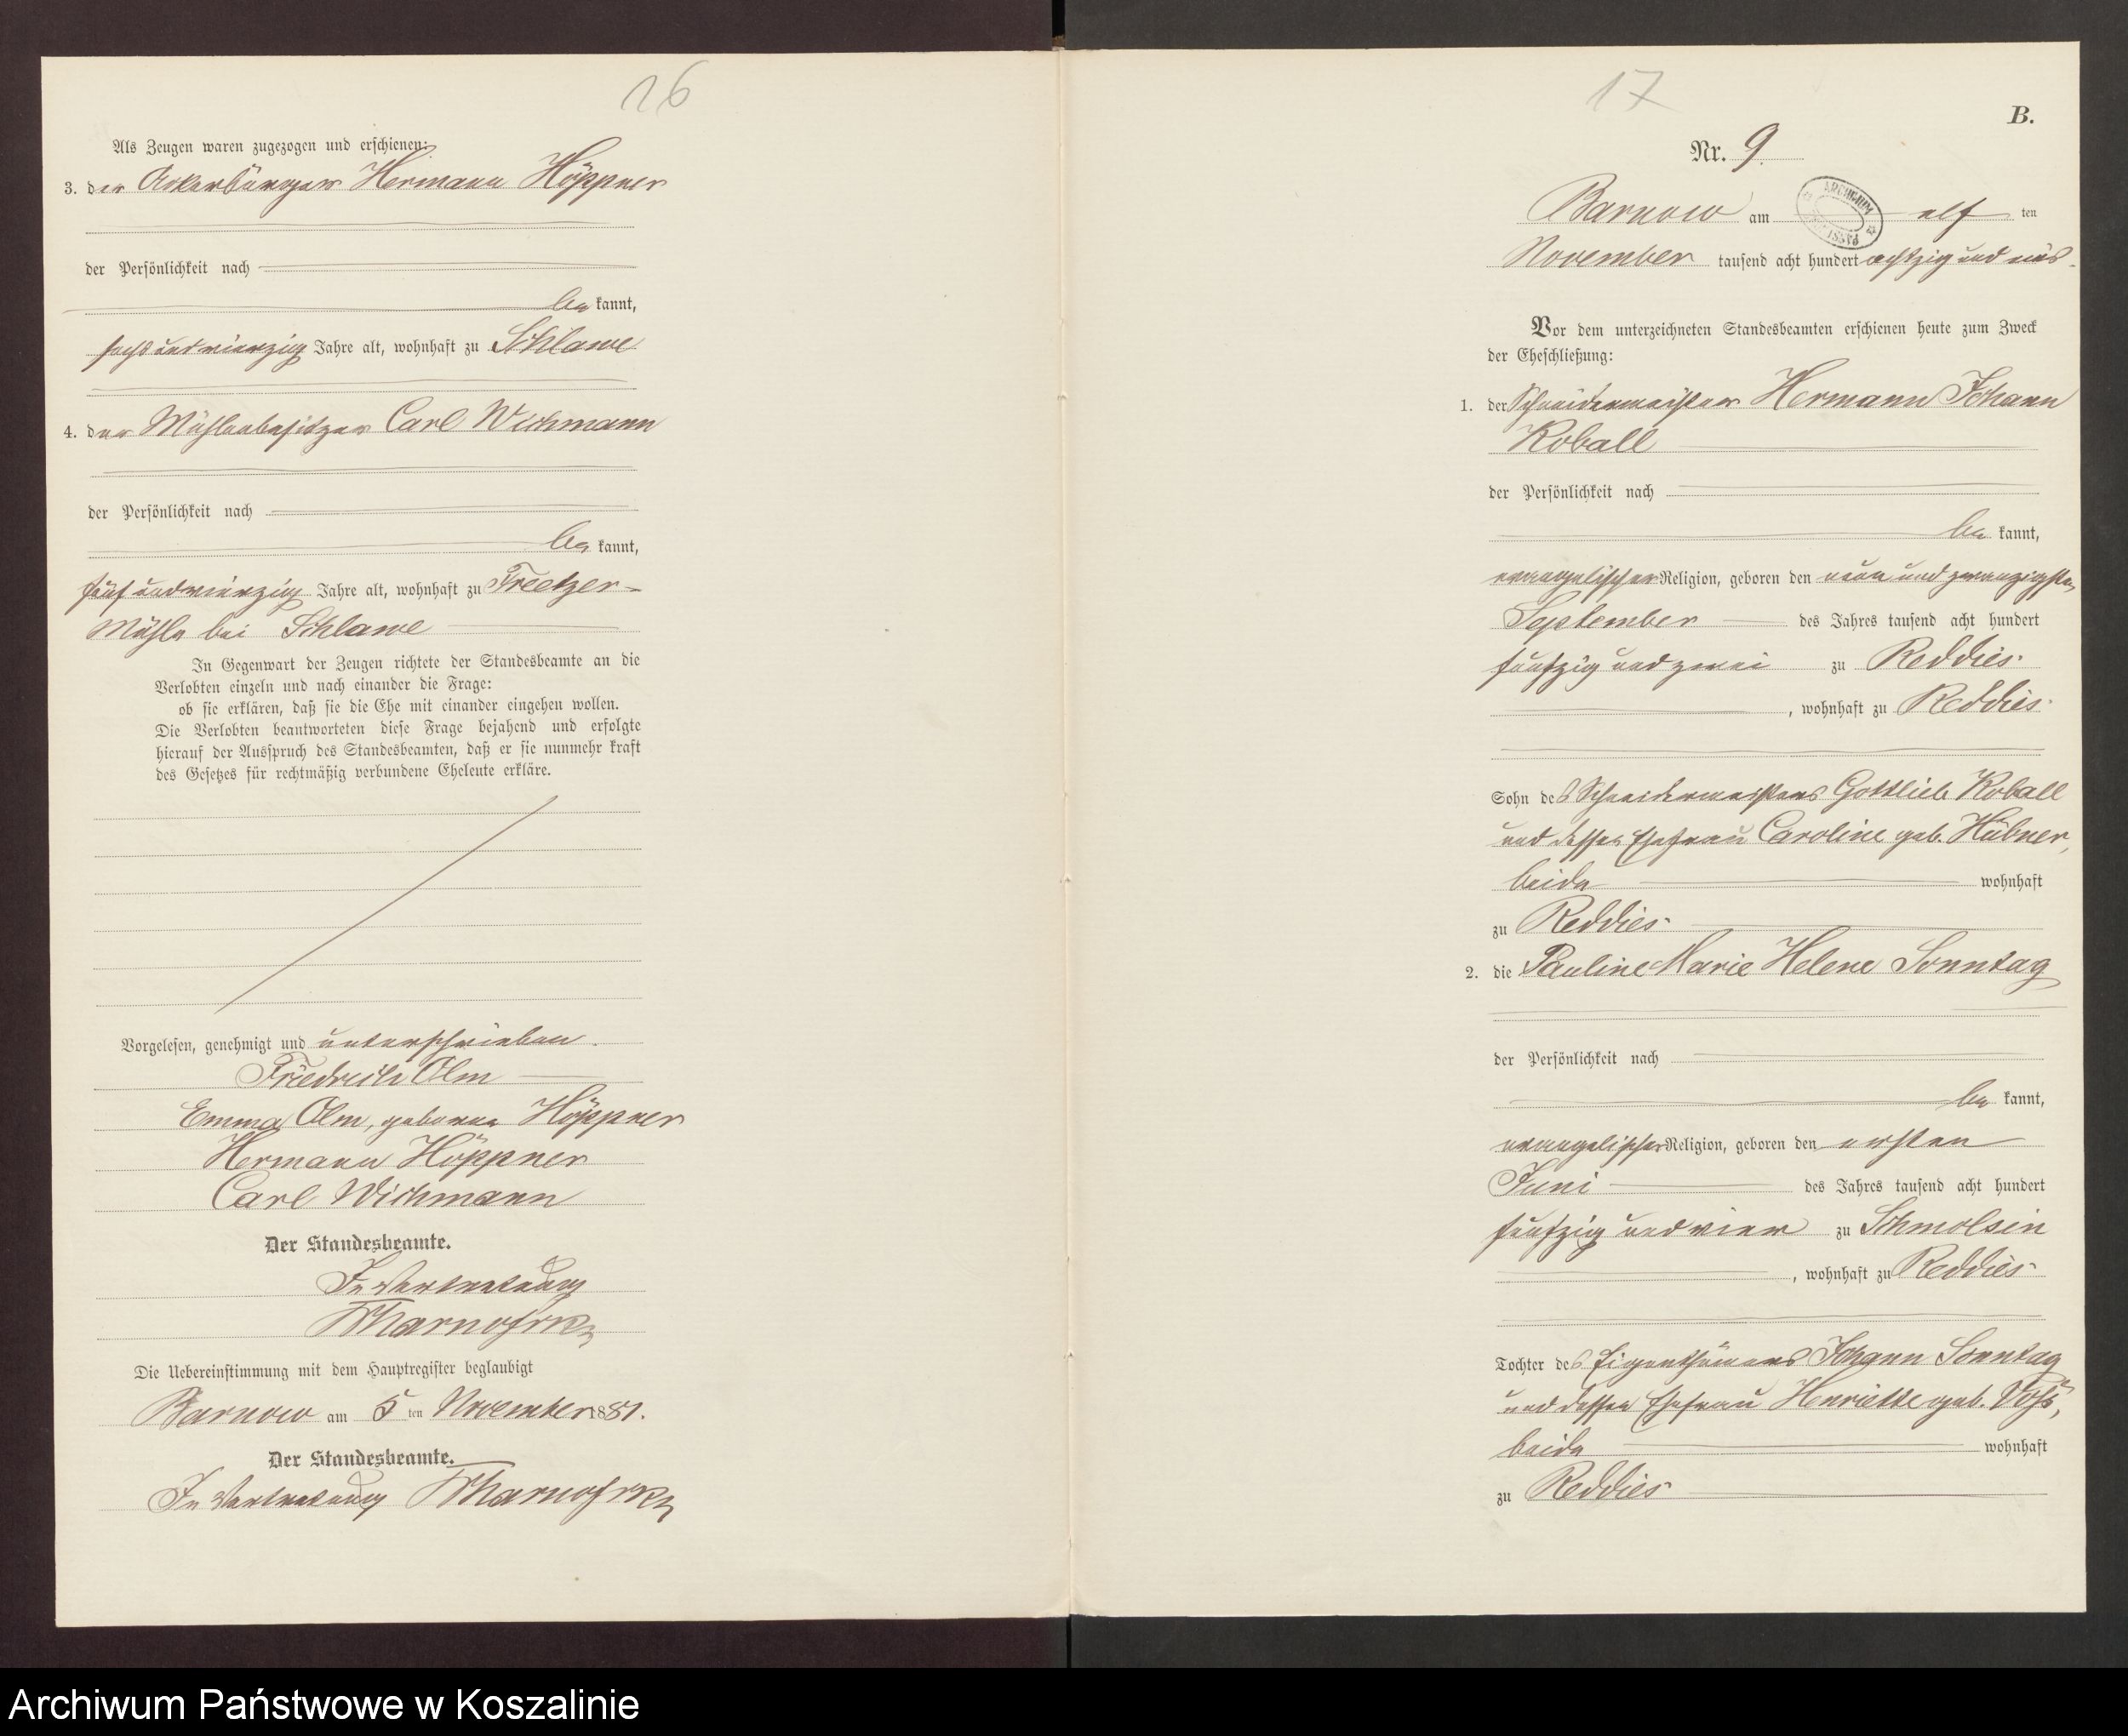 26
Als Zeugen waren zugezogen und erschienen:
3. der Ackerbürger Hermann Höppner
der Persönlichkeit nach
be kannt,
sechs und vierzig Jahre alt, wohnhaft zu Schlawe
4. der Mühlenbesitzer Carl Wichmann
der Persönlichkeit nach
be kannt,
fünf und vierzig Jahre alt, wohnhaft zu Freetzer-
Mühle bei Schlawe
In Gegenwart der Zeugen richtete der Standesbeamte an die
Verlobten einzeln und nach einander die Frage:
ob sie erklären, daß sie die Ehe mit einander eingehen wollen.
Die Verlobten beantworteten diese Frage bejahend und erfolgte
hierauf der Ausspruch des Standesbeamten, daß er sie nunmehr kraft
des Gesetzes für rechtmäßig verbundene Eheleute erkläre.
Vorgelesen, genehmigt und unterschrieben.
Friedrich Olm
Emma Olm, geborene Höppner
Hermann Höppner
Carl Wichmann
Der Standesbeamte.
In Vertretung
Die Uebereinstimmung mit dem Hauptregister beglaubigt
Barnow am 5 ten November 1881.
Der Standesbeamte.
In Vertretung
17
B.
Nr. 9.
Barnow am elf ten
November tausend acht hundert achtzig und eins.
ARCHIWUM
Vor dem unterzeichneten Standesbeamten erschienen heute zum Zweck
der Eheschließung:
1. der Schneidermeister Hermann Johann
Koball
der Persönlichkeit nach
be kannt,
evangelischer Religion, geboren den neun und zwanzigsten
September des Jahres tausend acht hundert
fünfzig und zwei zu Reddies
, wohnhaft zu Reddies
Sohn des Schneidermeisters Gottlieb Koball
und dessen Ehefrau Caroline geb. Hübner,
beide wohnhaft
zu Reddies
2. die Pauline Marie Helene Sonntag
der Persönlichkeit nach
be kannt,
evangelischer Religion, geboren den ersten
Juni des Jahres tausend acht hundert
fünfzig und vier zu Schmolsin
, wohnhaft zu Reddies
Tochter des Eigenthümers Johann Sonntag
und dessen Ehefrau Henriette geb. Voß,
beide wohnhaft
zu Reddies
Archiwum Państwowe w Koszalinie